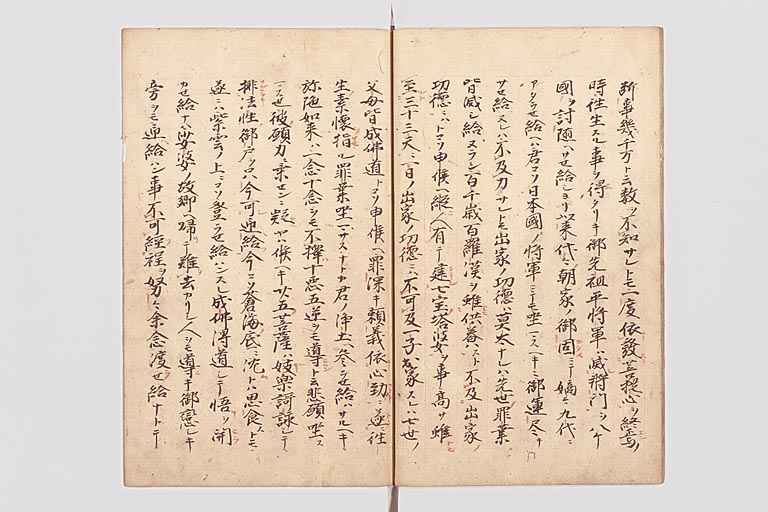 斯事幾千万ト云数ヲ不知サレトモ一度依発菩提心ヲ終焉ノ
時往生スル事ヲ得タリキ御先祖平将軍ハ滅将門ヲ八ケ
国ヲ討随ヘサセ給シヨリ以来代々朝家ノ御固ミニテ嫡々九代ニ
アタラセ給ヘハ君コソ日本国ノ将軍ニテ坐スヘキニ御運尽サ
サセ給ヌレハ不及力サレトモ出家ノ功徳ハ莫太ナレハ先世罪業
皆滅シ給ヌラン百千歳百羅漢ヲ雖供養スト不及出家ノ
功徳ニハトコソ申候ヘ縦ヒ人有テ建七宝塔婆ヲ事高サ雖
至三十三天ニ一日ノ出家ノ功徳ニハ不可及一子出家スレハ七世ノ
父母皆成佛道トコソ申候ヘ罪深キ頼義依心勁ニ遂往
生素懐指ル罪業坐サスナトカ君ノ浄土ヘ参ラセ給ハサルヘキ
弥陀如来ハ一念十念ヲモ不擇十悪五逆ヲモ導ト云悲願坐ス
彼願力ニ乗セン疑ヒヤハ候ヘキ廿五菩薩ハ妓樂謌詠シテ
排法性御戸只今可迎給今コソ蒼海底ニ沈トハ思食トモ
遂ニハ紫雲ノ上ニコソ登ラセ給ハンスレ成佛得道シテ悟ヲ開
カセ給ナハ娑婆ノ故郷ヘ帰テ難去カリシ人ヲモ導キ御恋シキ
旁ヲモ迎給ハン事不可経程ヲ努々余念渡セ給ナトテ